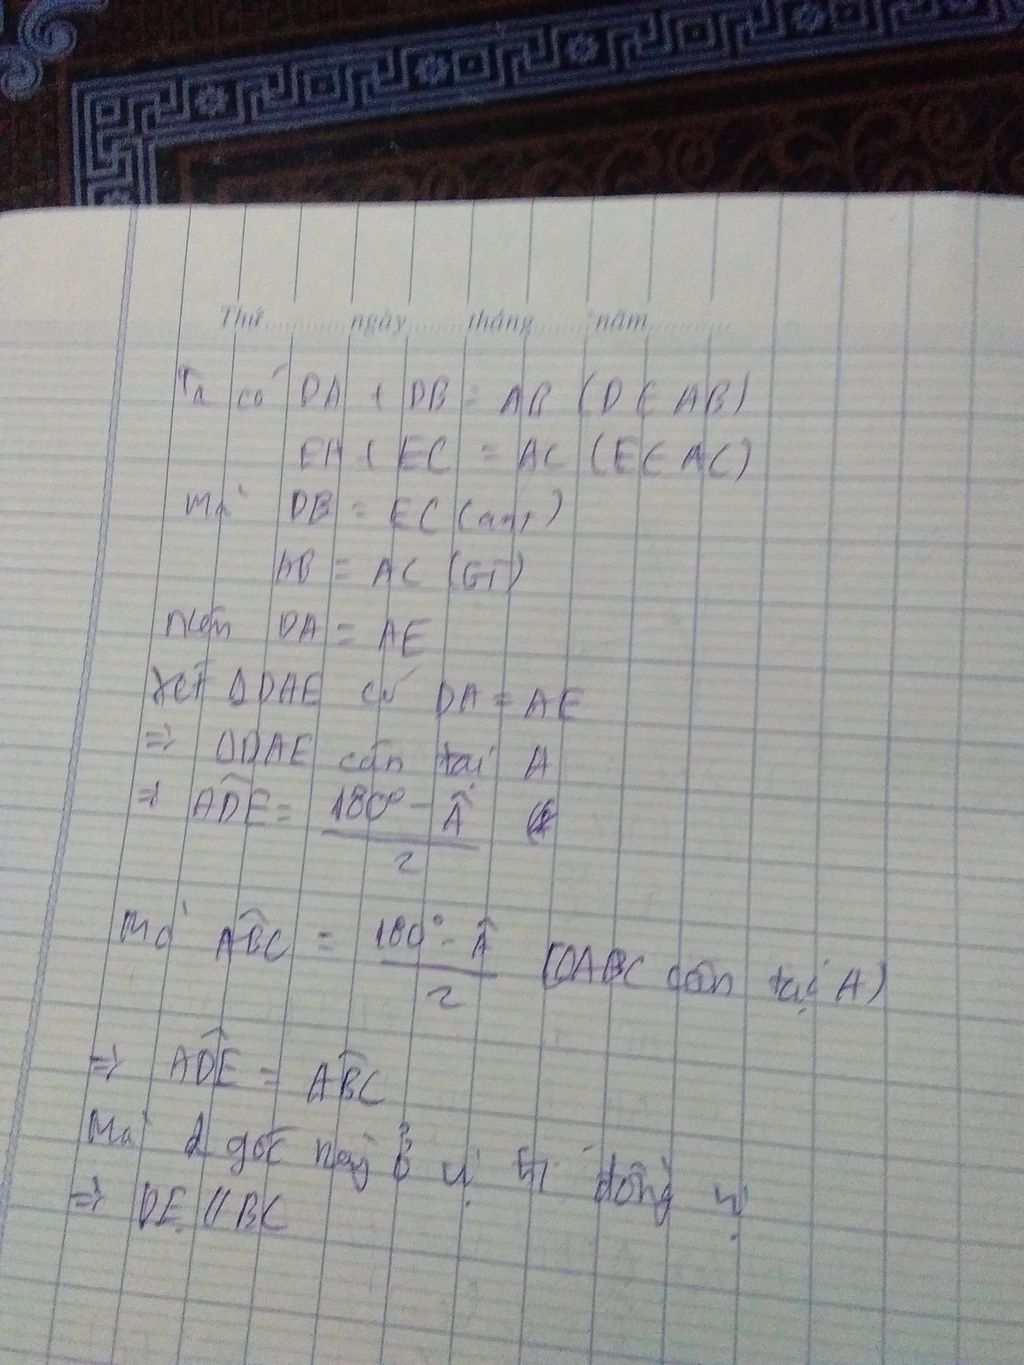 Thứ ngày tháng năm
Ta có DA + DB = AB (D ∈ AB)
EA + EC = AC (E ∈ AC)
Mà DB = EC (cmt)
AB = AC (GT)
nên DA = AE
Xét ΔDAE có DA = AE
=> ΔDAE cân tại A
=> \widehat{ADE} = \frac{180° - \hat{A}}{2}
Mà \widehat{ABC} = \frac{180° - \hat{A}}{2} (ΔABC cân tại A)
=> \widehat{ADE} = \widehat{ABC}
Mà 2 góc này ở vị trí đồng vị
=> DE // BC